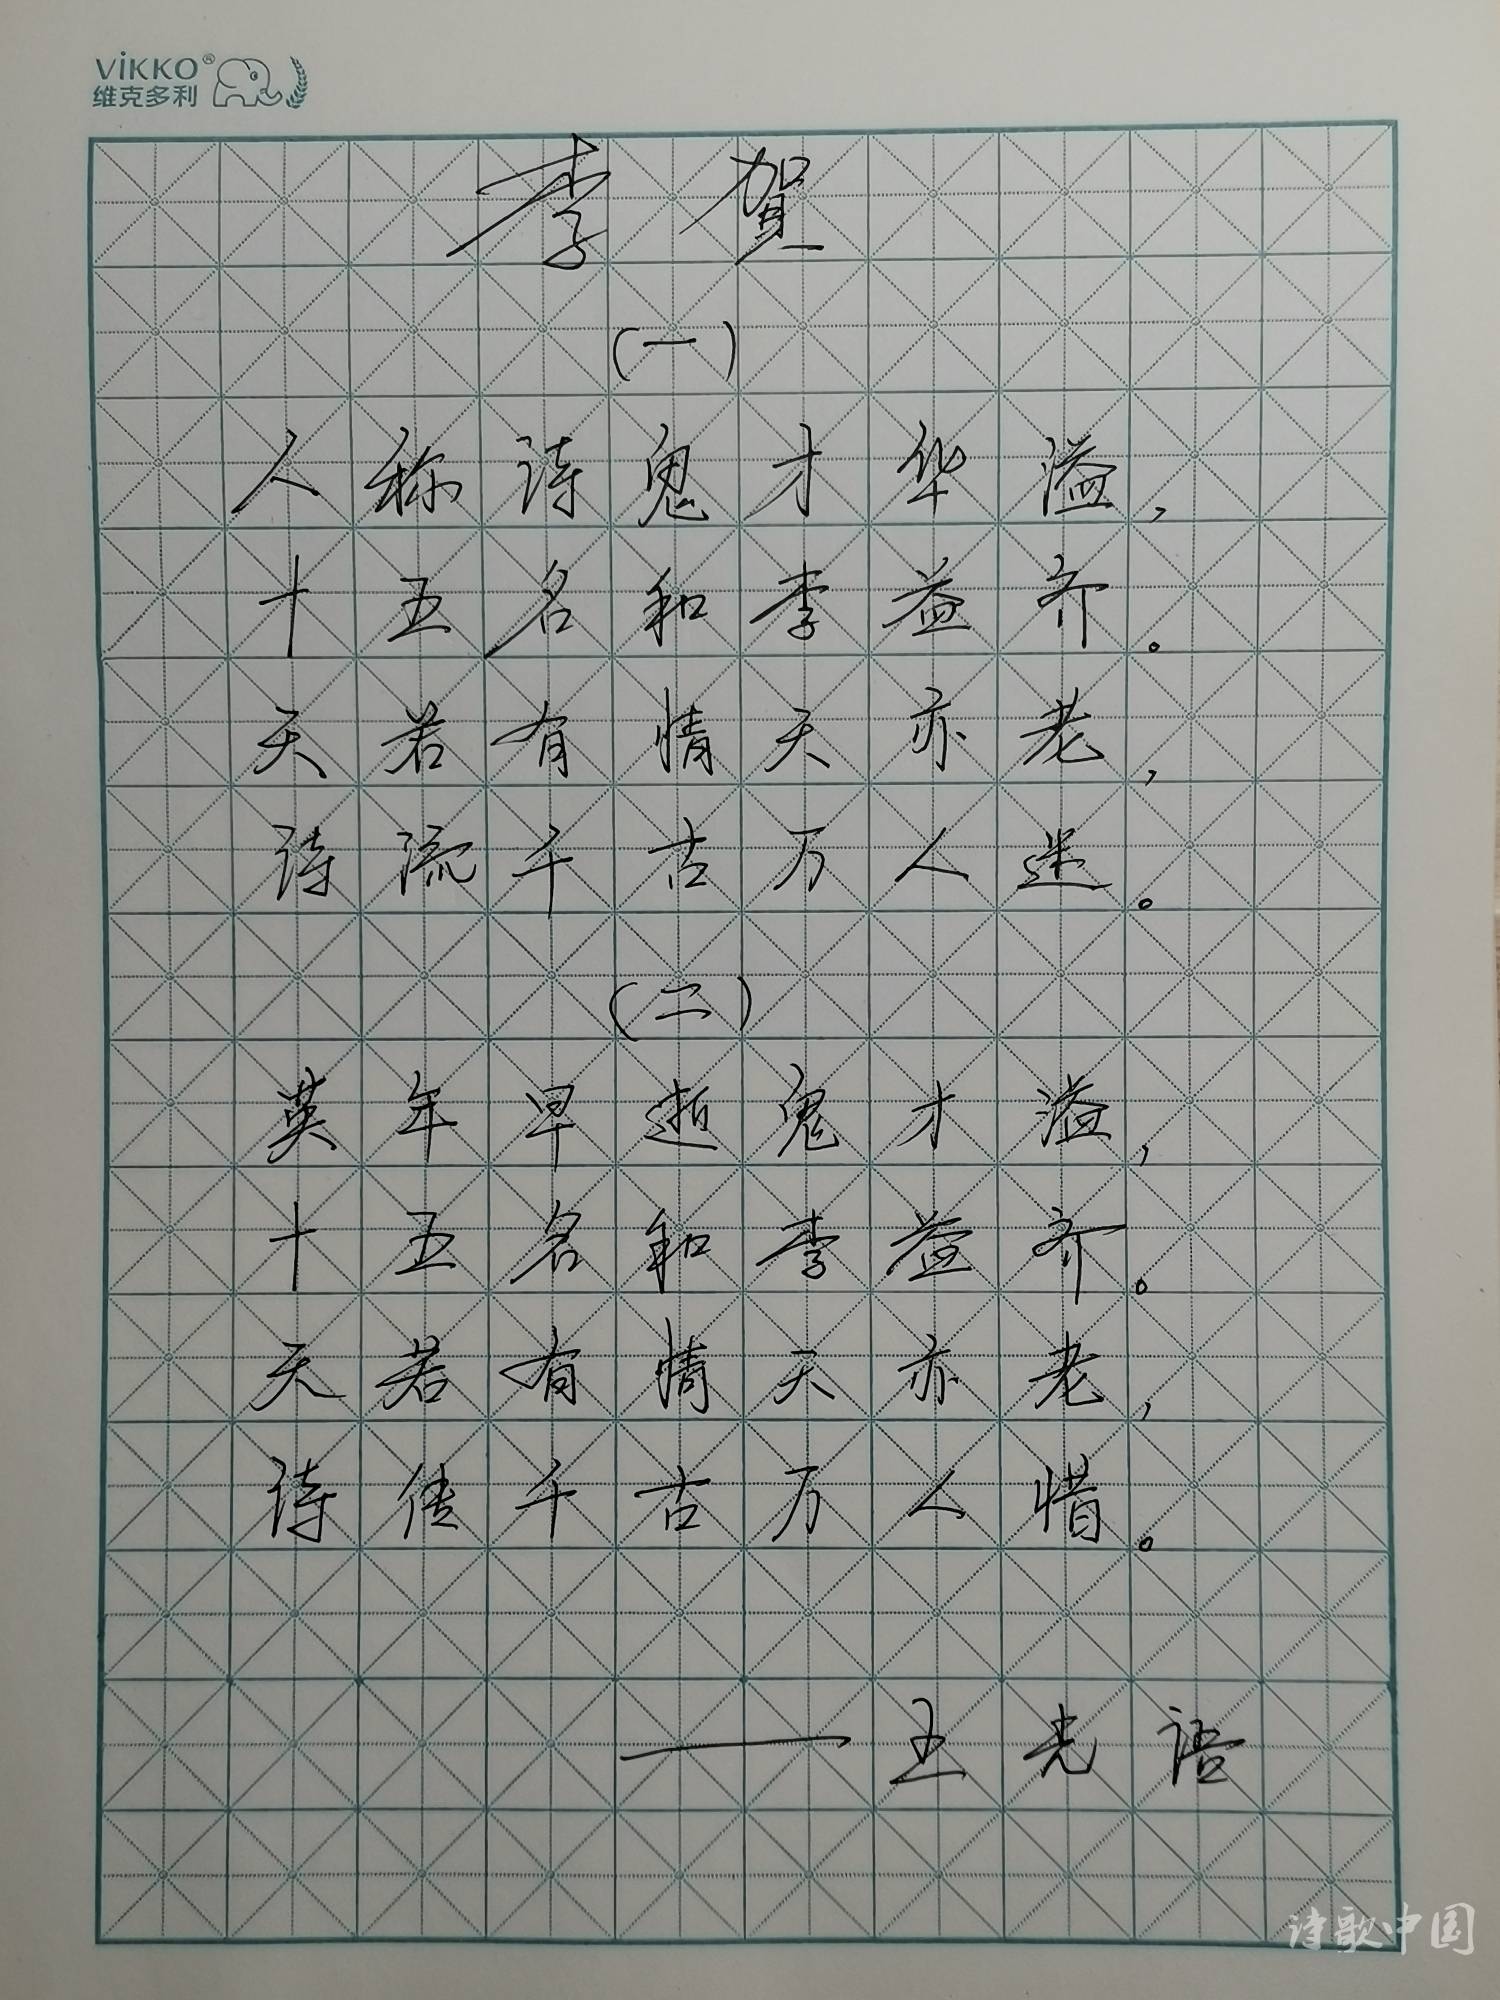 ViKKO®
维克多利
李贺
(一)
人称诗鬼才华溢,
十五名和李益齐。
天若有情天亦老,
诗流千古万人迷。
(二)
英年早逝鬼才溢,
十五名和李益齐。
天若有情天亦老,
诗传千古万人惜。
——王光语
诗歌中国